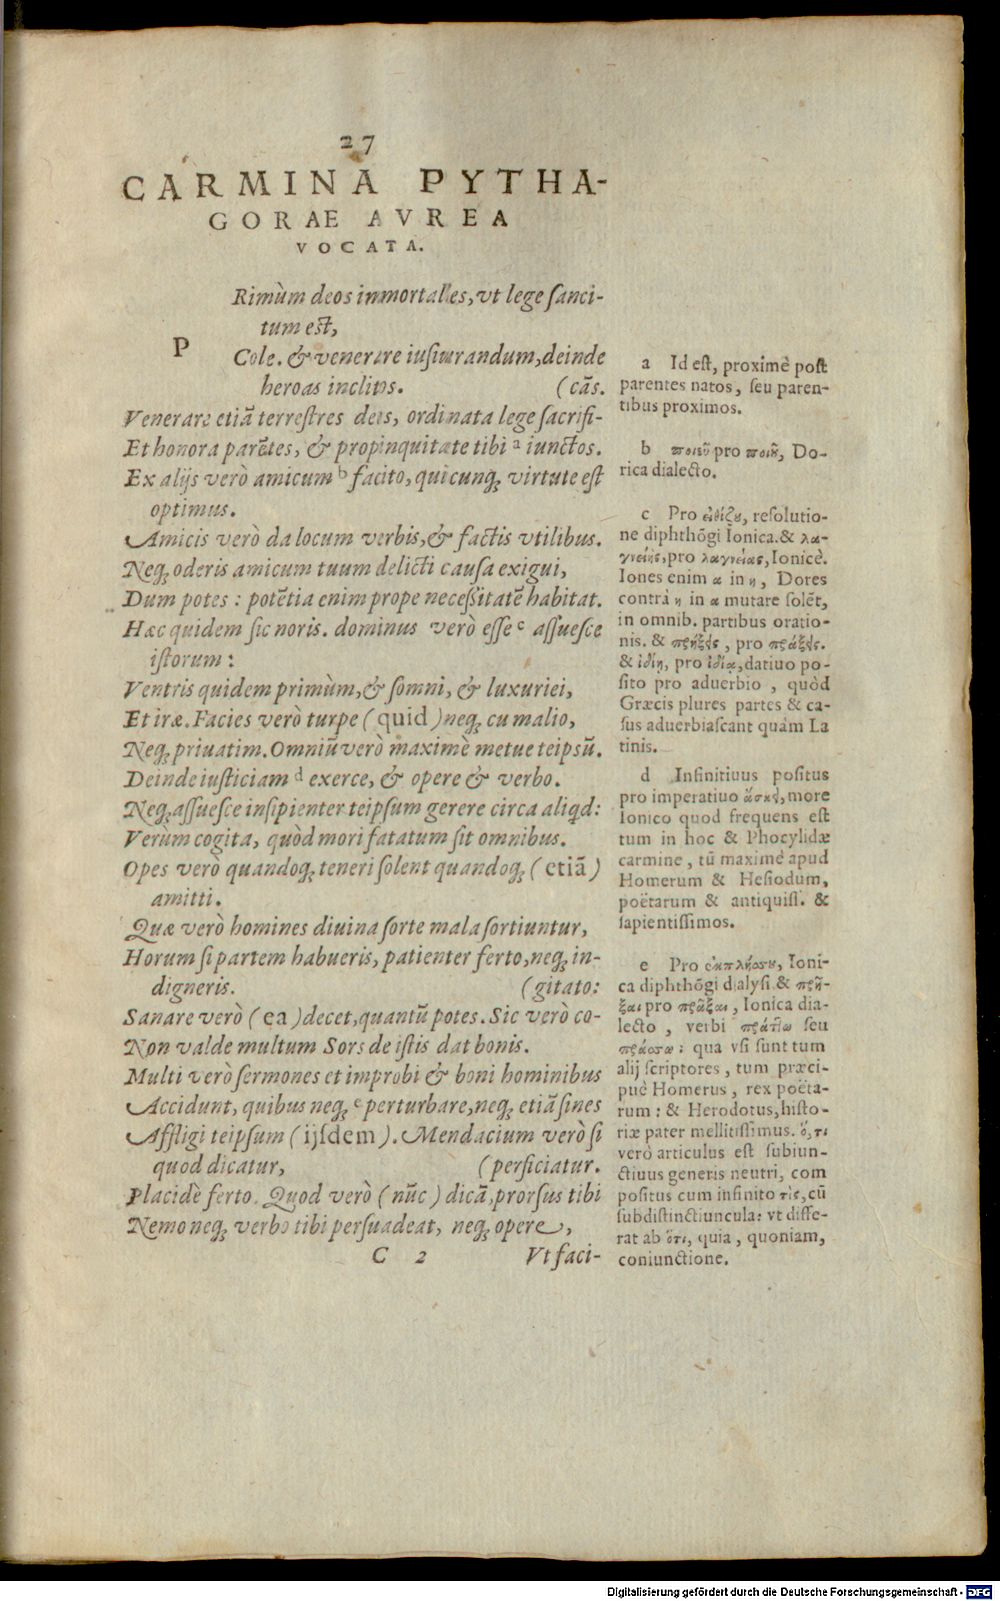 27
CARMINA PYTHA-
GORAE AVREA
VOCATA.
PRimùm deos inmortales, vt lege sanci-
tum est,
Cole. & venerere iusiurandum, deinde
heroas inclitos. (cãs.
Venerare etiã terrestres deos, ordinata lege sacrifi-
Et honora parẽtes, & propinquitate tibi a iunctos.
Ex alijs verò amicum b facito, quicunq; virtute est
optimus.
Amicis verò da locum verbis, & factis vtilibus.
Neq; oderis amicum tuum delicti causa exigui,
Dum potes: potẽtia enim prope necessitatẽ habitat.
Hæc quidem sic noris. dominus verò esse c assuesce
istorum:
Ventris quidem primùm, & somni, & luxuriei,
Et iræ. Facies verò turpe (quid) neq; cu malio,
Neq; priuatim. Omniũ verò maximè metue teipsũ.
Deinde iusticiam d exerce, & opere & verbo.
Neq; assuesce insipienter teipsum gerere circa aliqd:
Verùm cogita, quòd mori fatatum sit omnibus.
Opes verò quandoq; teneri solent quandoq; (etiã)
amitti.
Quæ verò homines diuina sorte mala sortiuntur,
Horum si partem habueris, patienter ferto, neq; in-
digneris. (gitato:
Sanare verò (ea) decet, quantũ potes. Sic verò co-
Non valde multum Sors de istis dat bonis.
Multi verò sermones et improbi & boni hominibus
Accidunt, quibus neq; e perturbare, neq; etiã sines
Affligi teipsum (ijsdem). Mendacium verò si
quod dicatur, (perficiatur.
Placidè ferto. Quod verò (nũc) dicã, prorsus tibi
Nemo neq; verbo tibi persuadeat, neq; opere,
C 2 Vt faci-
a Id est, proximè post
parentes natos, seu paren-
tibus proximos.
b ποιεῦ pro ποιοῦ, Do-
rica dialecto.
c Pro εἰθίζου, resolutio-
ne diphthõgi Ionica. & λα-
γνείης, pro λαγνείας, Ionicè.
Iones enim α in η, Dores
contrà η in α mutare solẽt,
in omnib. partibus oratio-
nis. & πρήξεις, pro πράξεις.
& ἰδίῃ, pro ἰδίᾳ, datiuo po-
sito pro aduerbio, quòd
Græcis plures partes & ca-
sus aduerbiascant quàm La
tinis.
d Infinitiuus positus
pro imperatiuo ἄσκει, more
Ionico quod frequens est
tum in hoc & Phocylidæ
carmine, tũ maximè apud
Homerum & Hesiodum,
poëtarum & antiquiss. &
sapientissimos.
e Pro ἐκπλήσσου, Ioni-
ca diphthõgi dialysi & πρῆ-
ξαι pro πρᾶξαι, Ionica dia-
lecto, verbi πράττω seu
πράσσω: qua vsi sunt tum
alij scriptores, tum præci-
puè Homerus, rex poëta-
rum: & Herodotus, histo-
riæ pater mellitissimus. ὅ, τι
verò articulus est subiun-
ctiuus generis neutri, com
positus cum infinito τὶς, cũ
subdistinctiuncula: vt diffe-
rat ab ὅτι, quia, quoniam,
coniunctione.
Digitalisierung gefördert durch die Deutsche Forschungsgemeinschaft - DFG